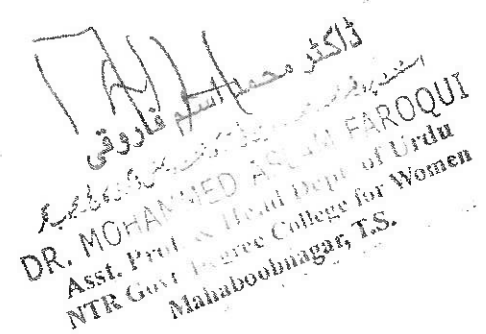 ڈاکٹر محمد اسلم فاروقی
DR. MOHAMMED ASLAM FAROQUI
Asst. Prof. & Head Dept. of Urdu
NTR Govt. Degree College for Women
Mahaboobnagar, T.S.